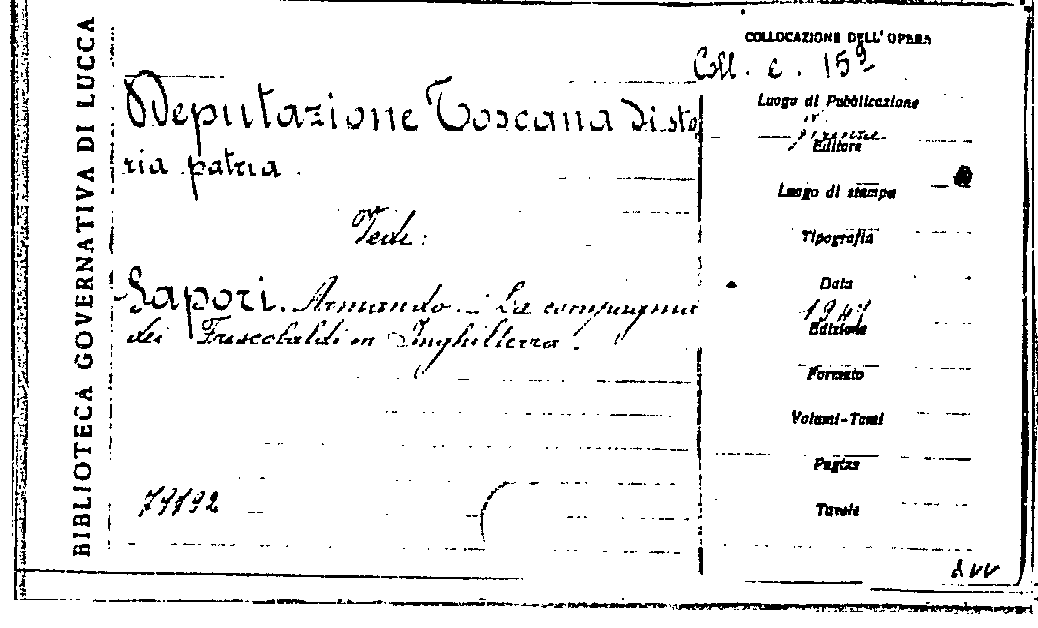 BIBLIOTECA GOVERNATIVA DI LUCCA
Deputazione Toscana di sto
ria patria.
Vedi:
Sapori. Armando. La compagnia
dei Frescobaldi in Inghilterra.
79192
COLLOCAZIONE DELL'OPERA
Coll. c. 159
Luogo di Pubblicazione
Firenze
Editore
Luogo di stampa
Tipografia
Data
1947
Edizione
Formato
Volumi-Tomi
Pagine
Tavole